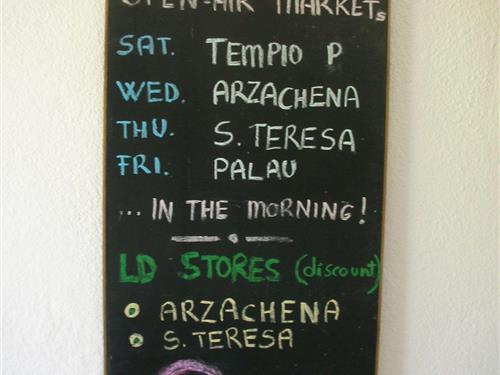 OPEN-AIR MARKETS
SAT. TEMPIO P
WED. ARZACHENA
THU. S. TERESA
FRI. PALAU
... IN THE MORNING!
LD STORES (discount)
ARZACHENA
S. TERESA